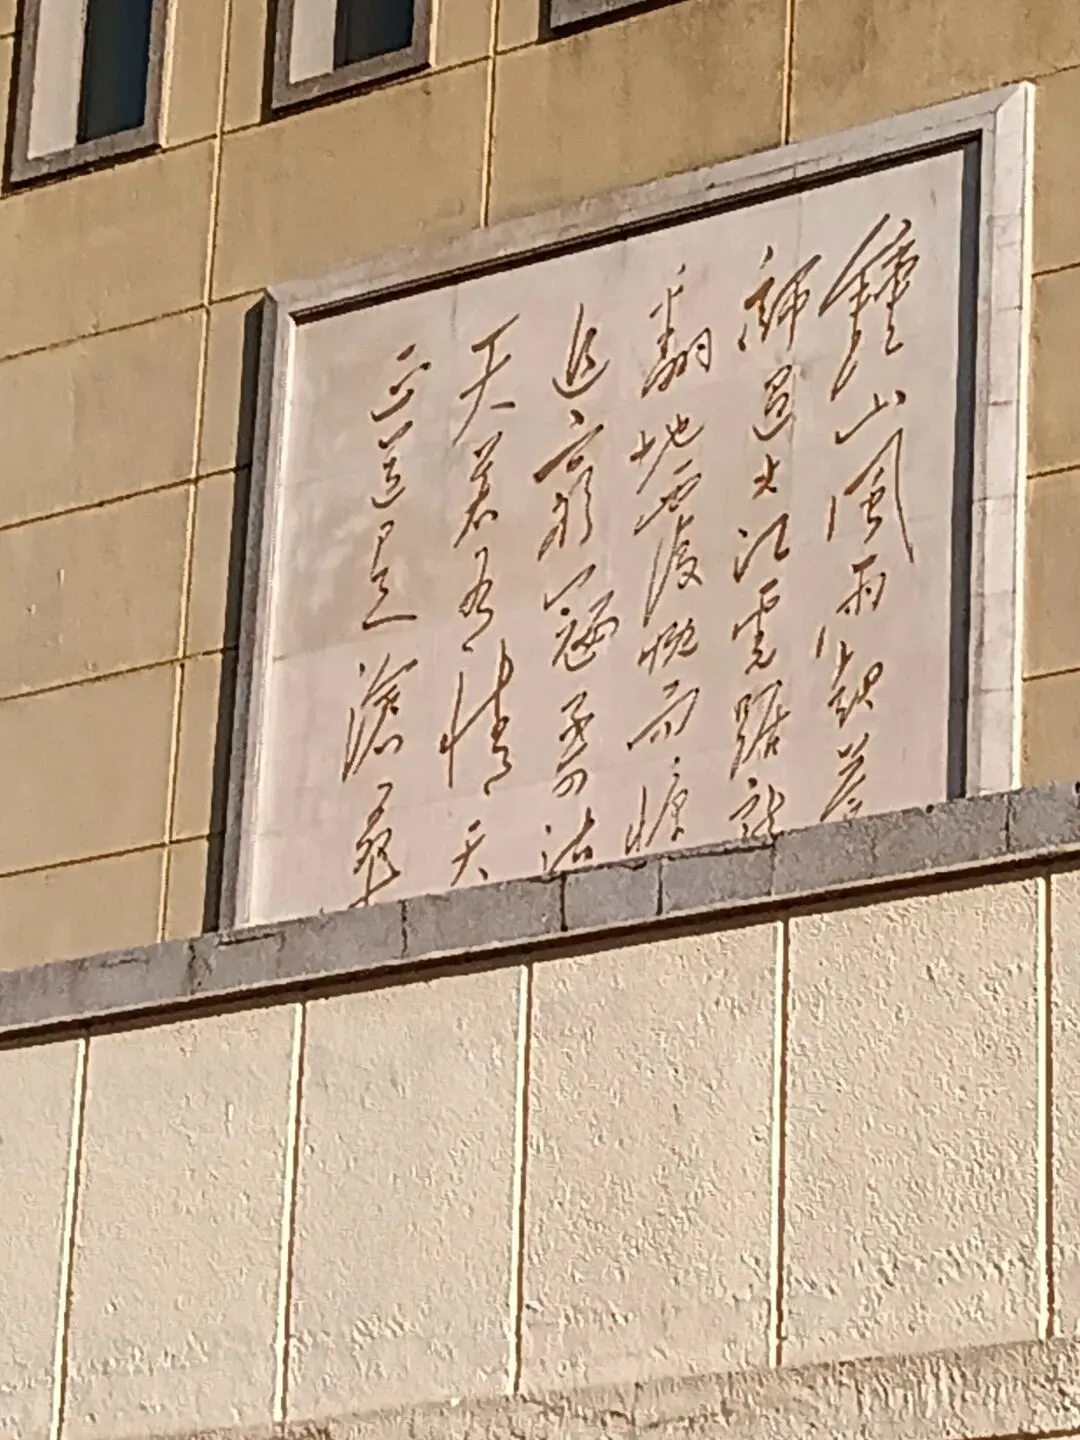 鐘山風雨起蒼
師過大江虎踞龍
翻地覆慨而慷
追窮寇不可沽
天若有情天
正道是滄桑